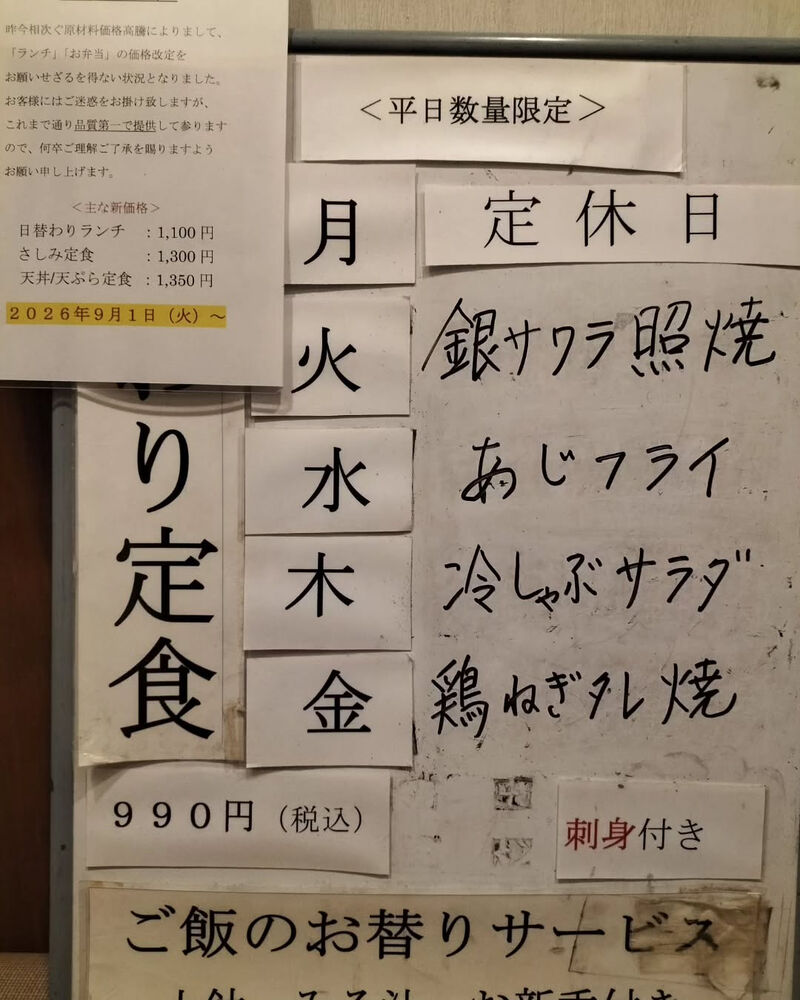 昨今相次ぐ原材料価格高騰によりまして、
「ランチ」「お弁当」の価格改定を
お願いせざるを得ない状況となりました。
お客様にはご迷惑をお掛け致しますが、
これまで通り品質第一で提供して参ります
ので、何卒ご理解ご了承を賜りますよう
お願い申し上げます。
＜主な新価格＞
日替わりランチ ：1,100円
さしみ定食 ：1,300円
天丼/天ぷら定食 ：1,350円
２０２６年９月１日（火）～
＜平日数量限定＞
り定食
月 定休日
火 銀サワラ照焼
水 あじフライ
木 冷しゃぶサラダ
金 鶏ねぎタレ焼
９９０円（税込）
刺身付き
ご飯のお替りサービス